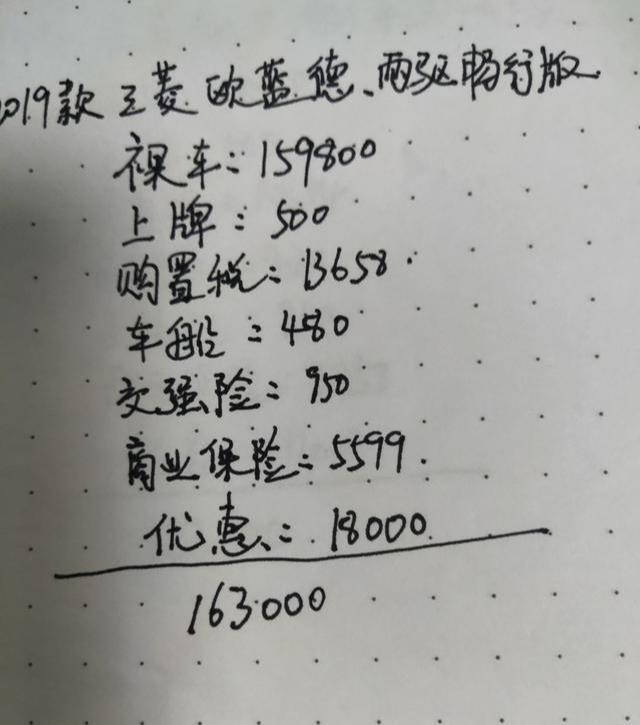 2019款三菱欧蓝德、两驱畅行版
裸车：159800
上牌：500
购置税：13658.
车船：480
交强险：950
商业保险：5599.
优惠：18000
163000